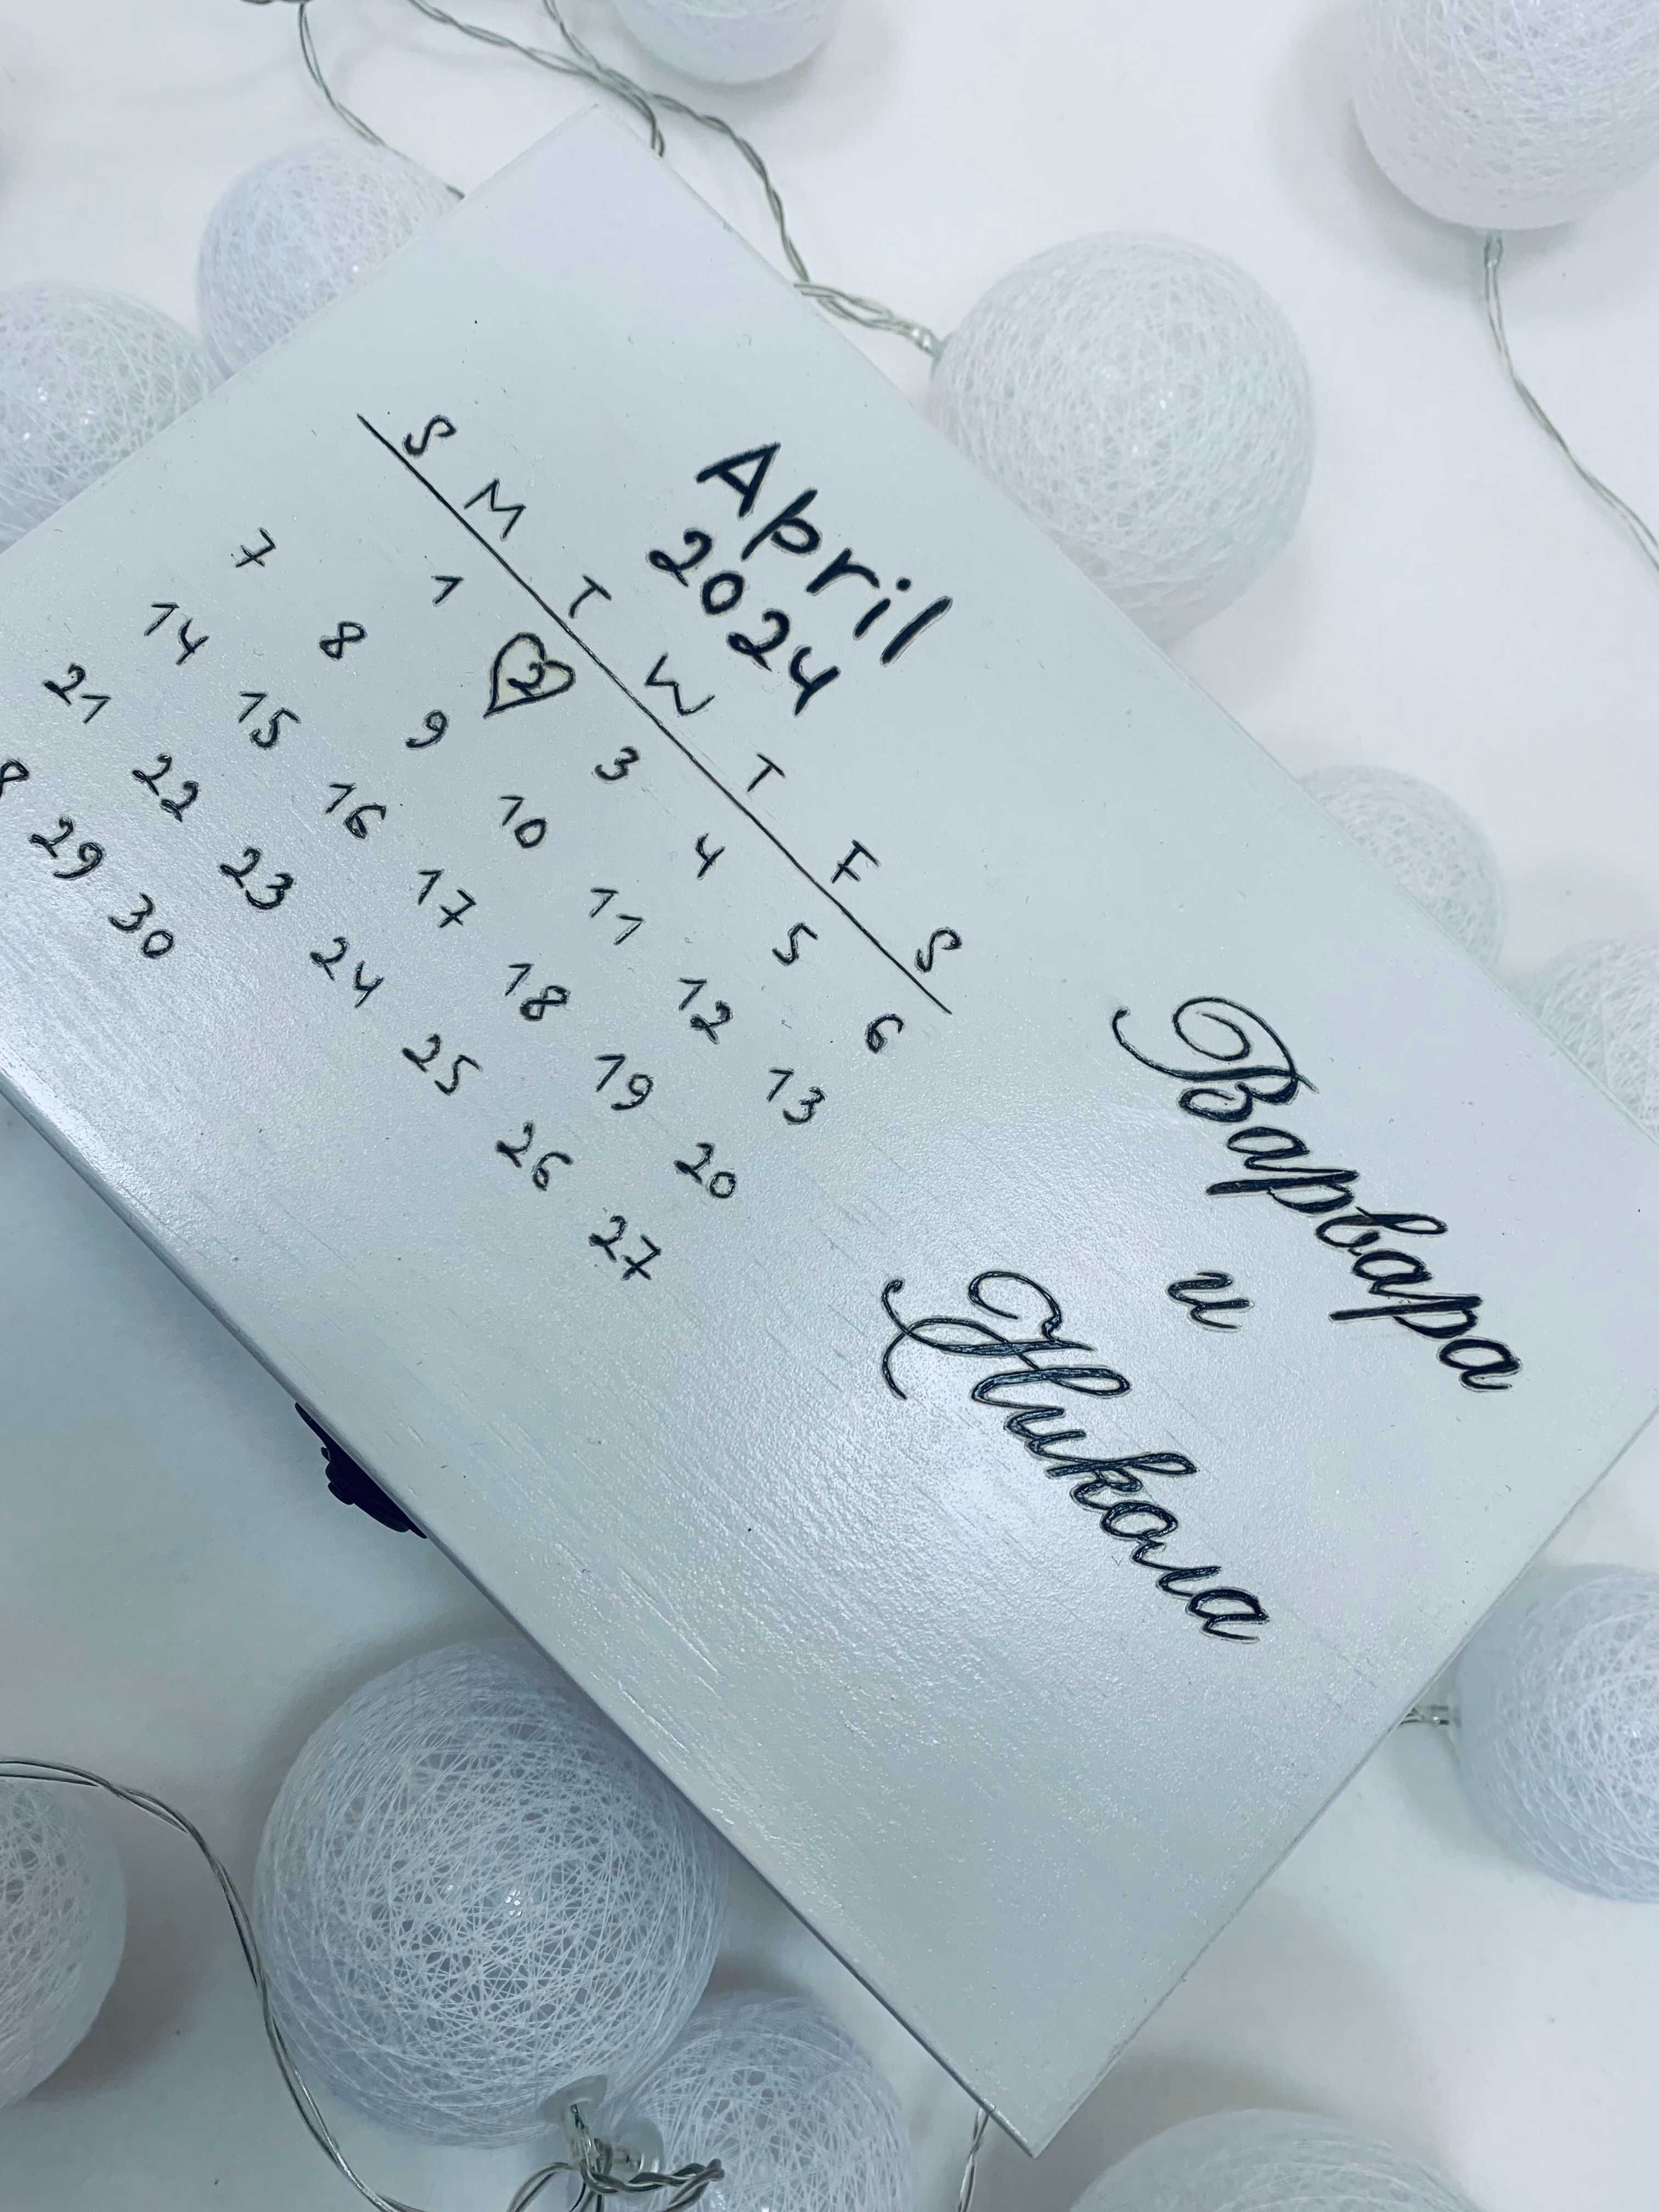 April
2024
S M T W T F S
1 2 3 4 5 6
7 8 9 10 11 12 13
14 15 16 17 18 19 20
21 22 23 24 25 26 27
8 29 30
Варвара
и
Никола